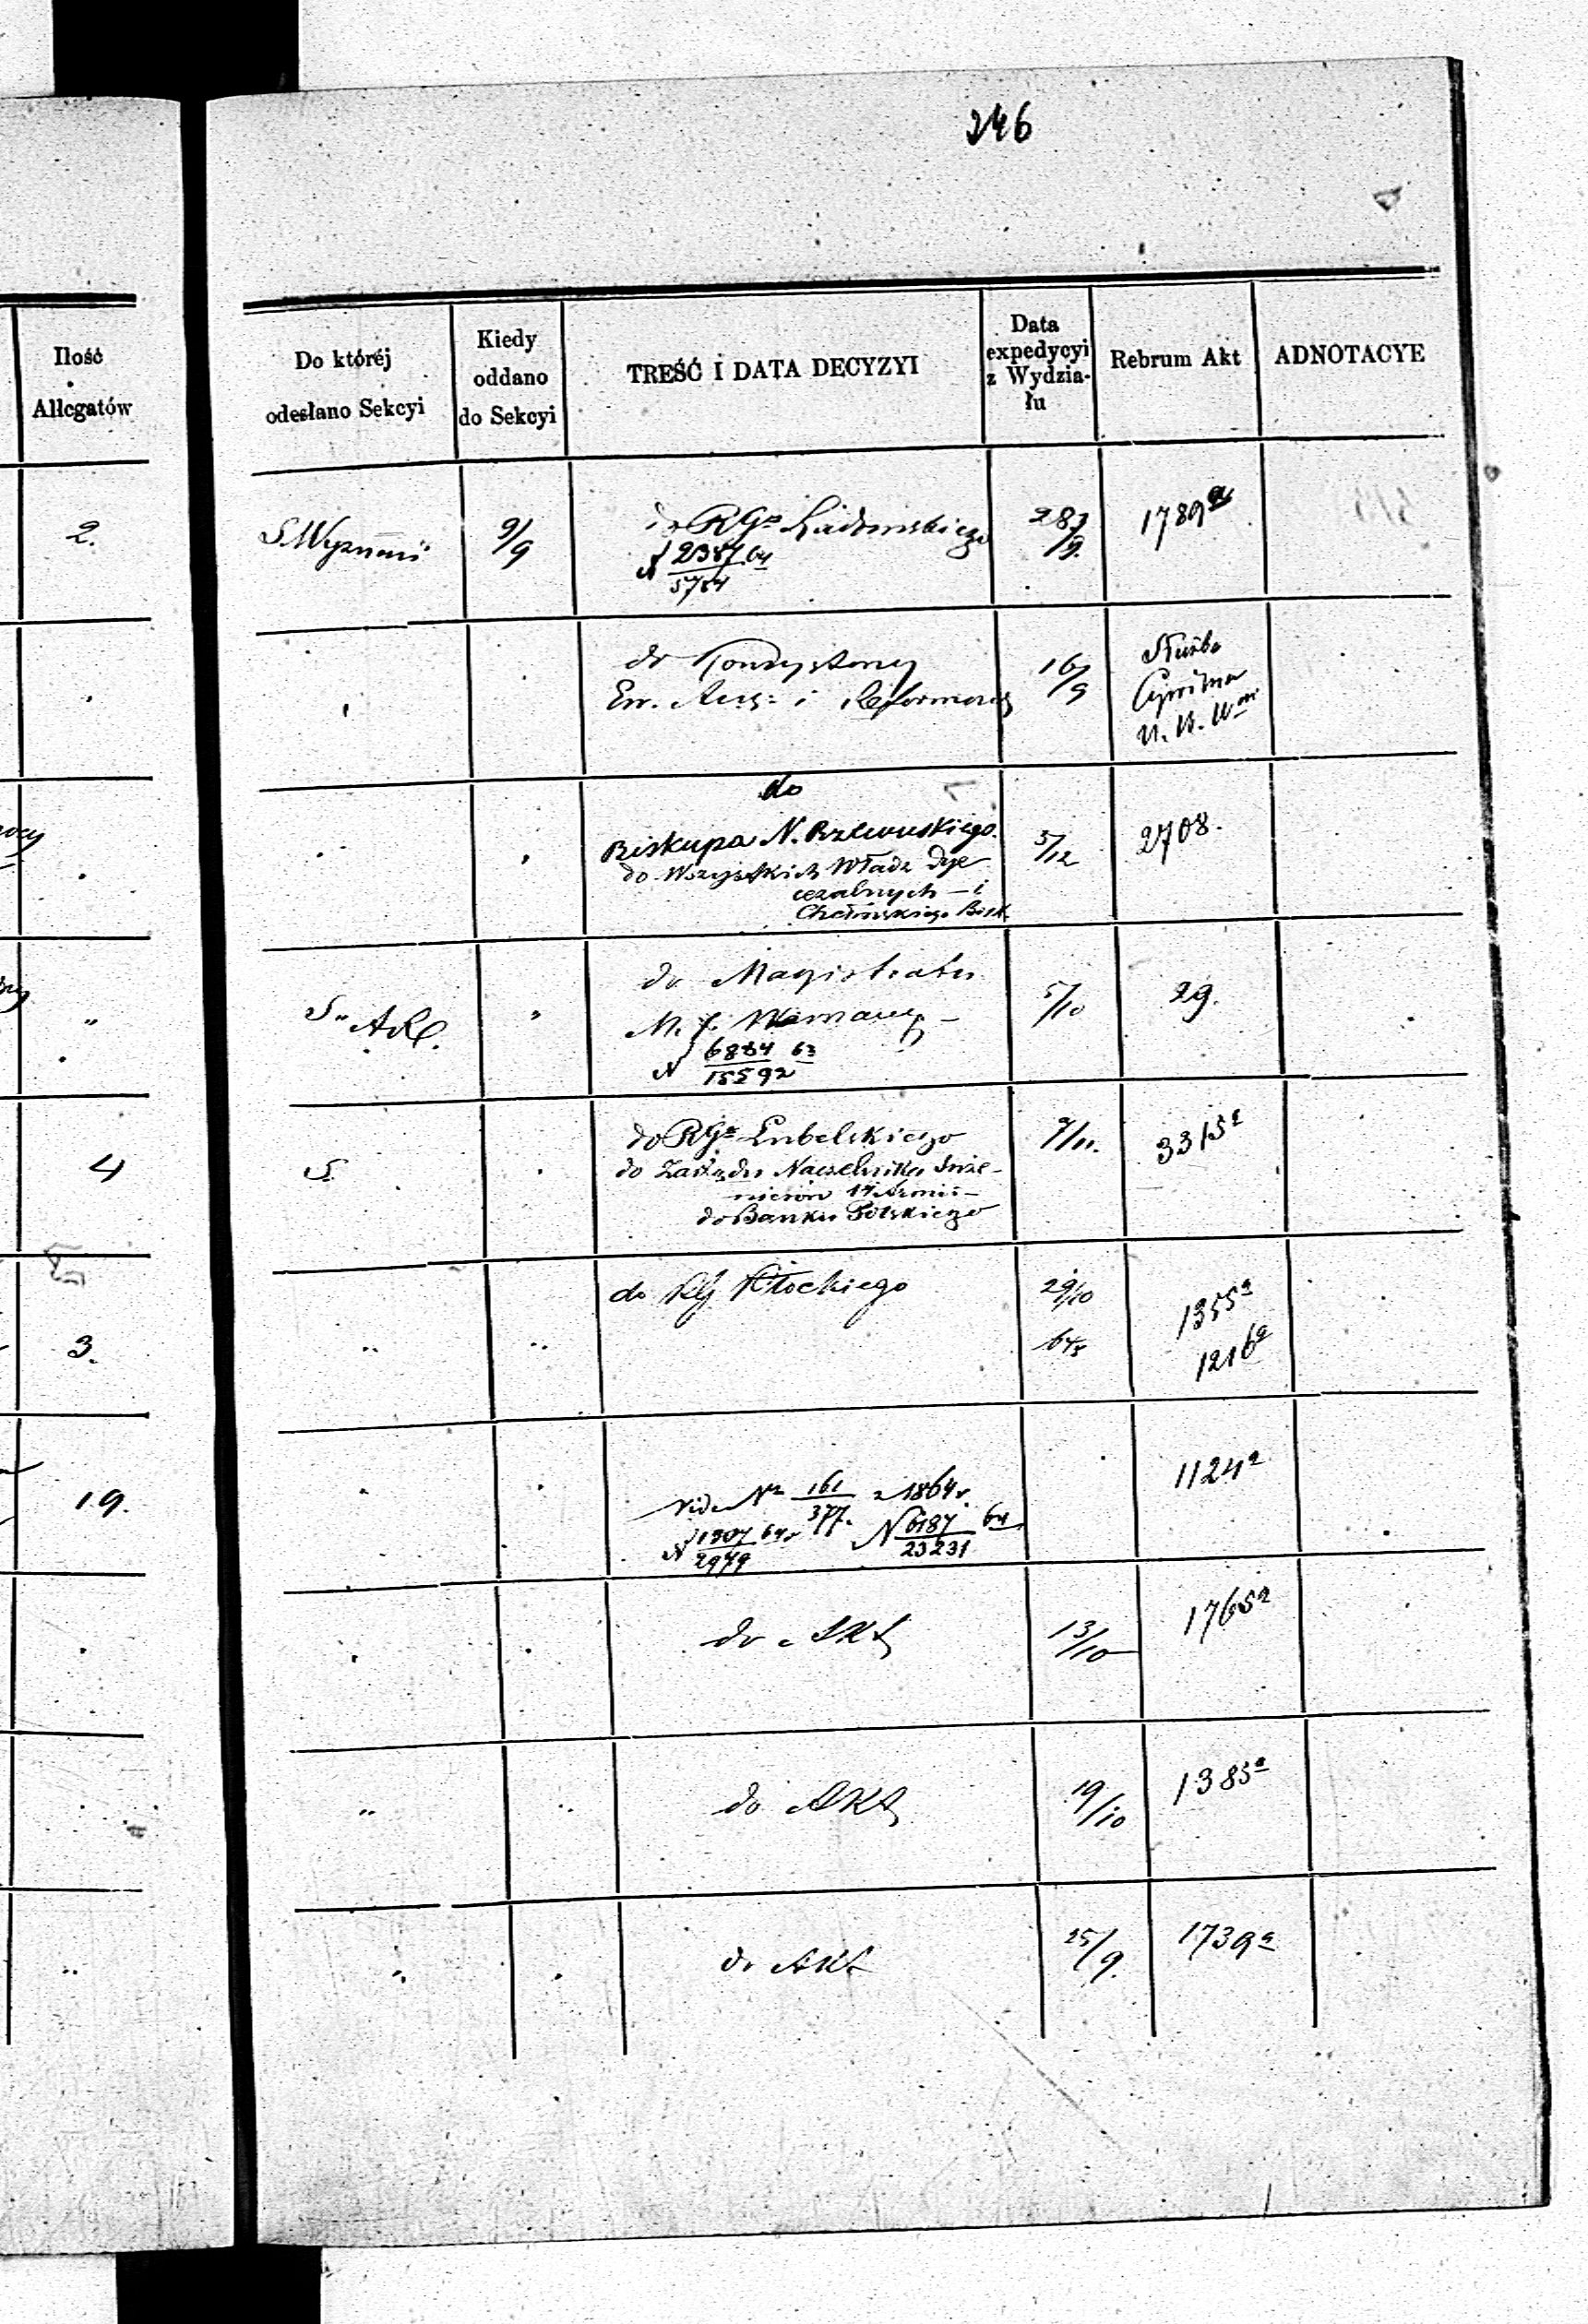 246
Ilość
Allegatów
Do któréj
odesłano Sekcyi
Kiedy
oddano
do Sekcyi
TREŚĆ I DATA DECYZYI
Data
expedycyi
z Wydzia-
łu
Rebrum Akt
ADNOTACYE
2.
S. Wyznań
9/9
do RGo Radomskiego
N 2387/5754 64
28/9.
1789a
do Konsystorzy
Ew. Augs: i Reformow
16/9
Służba
Cywilna
do
Biskupa N. Rzewuskiego.
do Wszystkich Władz Dye
cezalnych — i
Chełmskiego Bisk.
5/12
2708.
S" AR.
"
do Magistratu
M. S. Warszawy —
N 6884/15592 63
5/10
29.
4
S.
do RGo Lubelskiego
do Zarządu Naczelnika Inże-
nierów 1ej Armii —
do Banku Polskiego
9/11.
3315a
3.
"
"
do RG Płockiego
29/10
1355a
1216a
19.
Vide No 161/377. z 1864 r.
N 1307/2979 64 r N 6187/23231 64
1124a
do Akt
13/10
1765a
"
"
do Akt
19/10
1385a
"
"
do Akt
25/9.
1739a